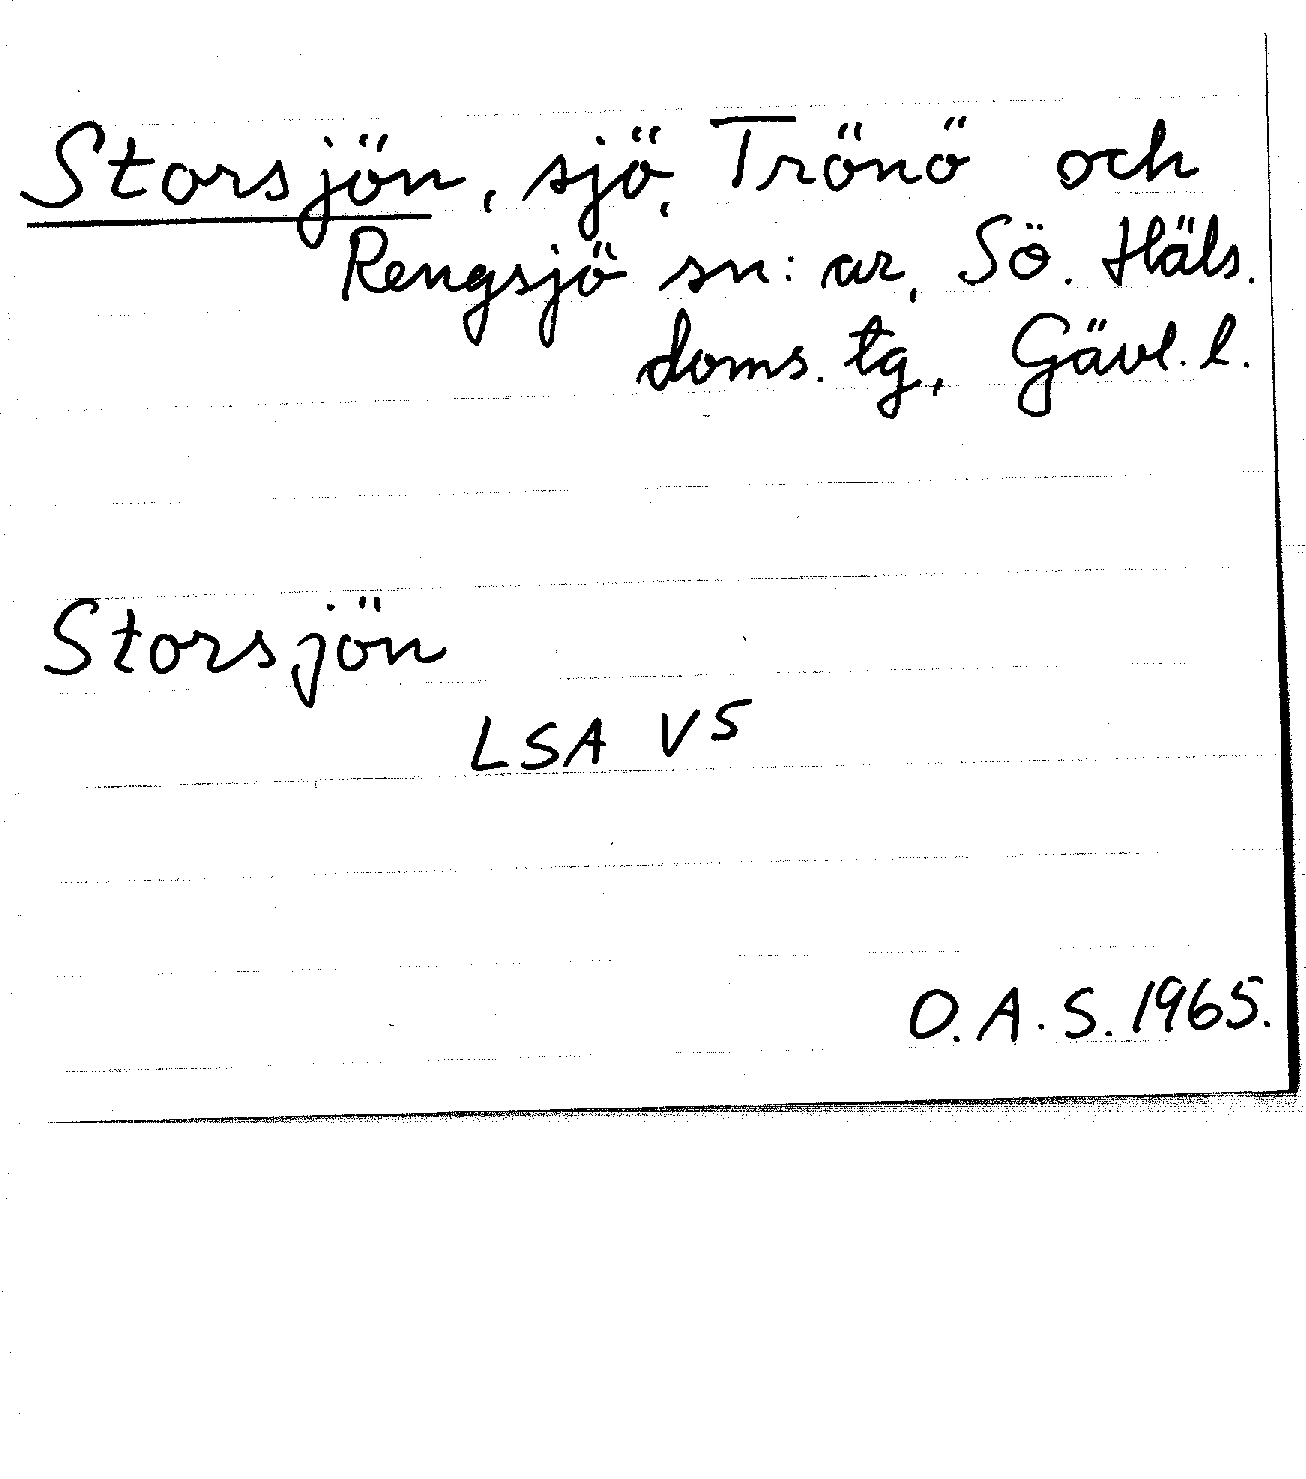 Storsjön, sjö, Trönö och
Rengsjö sn:ar, Sö. Häls.
doms. tg, Gävl. l.
Storsjön
LSA V5
O.A.S. 1965.